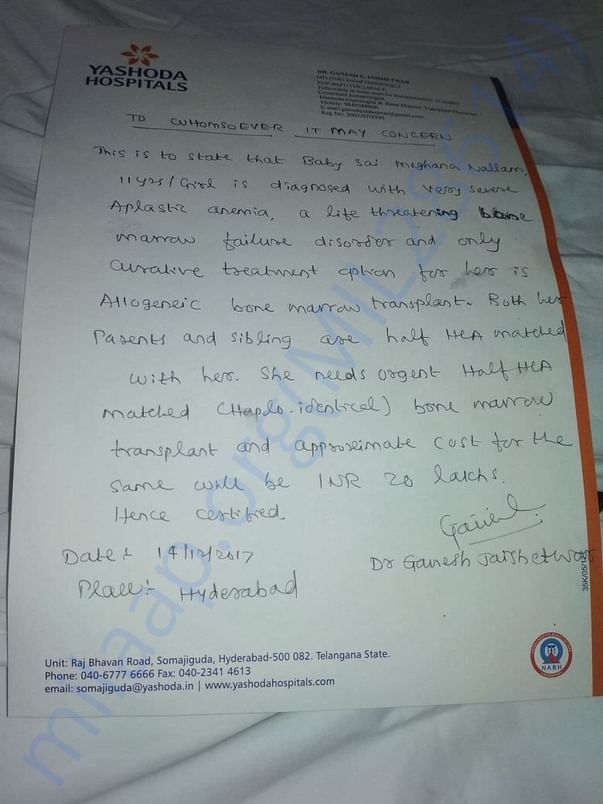 YASHODA
HOSPITALS
DR. GANESH S. JAISHETWAR
Consultant Hematologist,
Hemato-Oncologist & Bone Marrow Transplant Physician
TO WHOMSOEVER IT MAY CONCERN
This is to state that Baby Sai Meghana Nallam,
11 yrs/Girl is diagnosed with very severe
Aplastic anemia, a life threatening bone
marrow failure disorder and only
curative treatment option for her is
Allogeneic bone marrow transplant. Both her
Parents and sibling are half HLA matched
with her. She needs urgent Half HLA
matched (Haplo-identical) bone marrow
transplant and approximate cost for the
same will be INR 20 lakhs.
Hence certified.
Date:- 14/12/2017
Dr Ganesh Jaishetwar
Place:- Hyderabad
Unit: Raj Bhavan Road, Somajiguda, Hyderabad-500 082. Telangana State.
Phone: 040-6777 6666 Fax: 040-2341 4613
email: somajiguda@yashoda.in | www.yashodahospitals.com
NABH